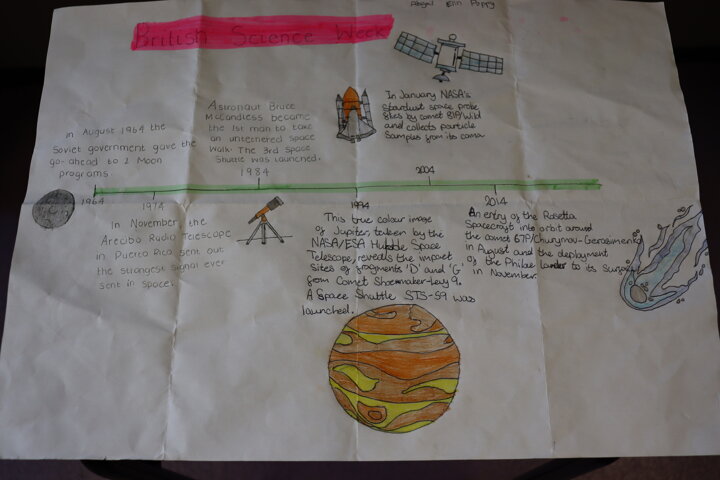 Abigail Erin Poppy
British Science Week
In August 1964 the
Soviet government gave the
go-ahead to 2 Moon
programs
Astronaut Bruce
McCandless became
the 1st man to take
an untethered space
walk. The 3rd Space
Shuttle was launched.
1984
In January NASA's
Stardust space probe
flies by comet 81P/Wild
and collects particle
samples from its coma.
2004
1964
1974
1994
2014
In November, the
Arecibo Radio Telescope
in Puerto Rico sent out
the strongest signal ever
sent in space.
This true colour image
of Jupiter, taken by the
NASA/ESA Hubble Space
Telescope, reveals the impact
sites of fragments 'D' and 'G'
from Comet Shoemaker-Levy 9.
A Space Shuttle STS-59 was
launched.
An entry of the Rosetta
Spacecraft into orbit around
the comet 67P/Churyumov-Gerasimenko
in August and the deployment
of the Philae lander to its surface
in November.